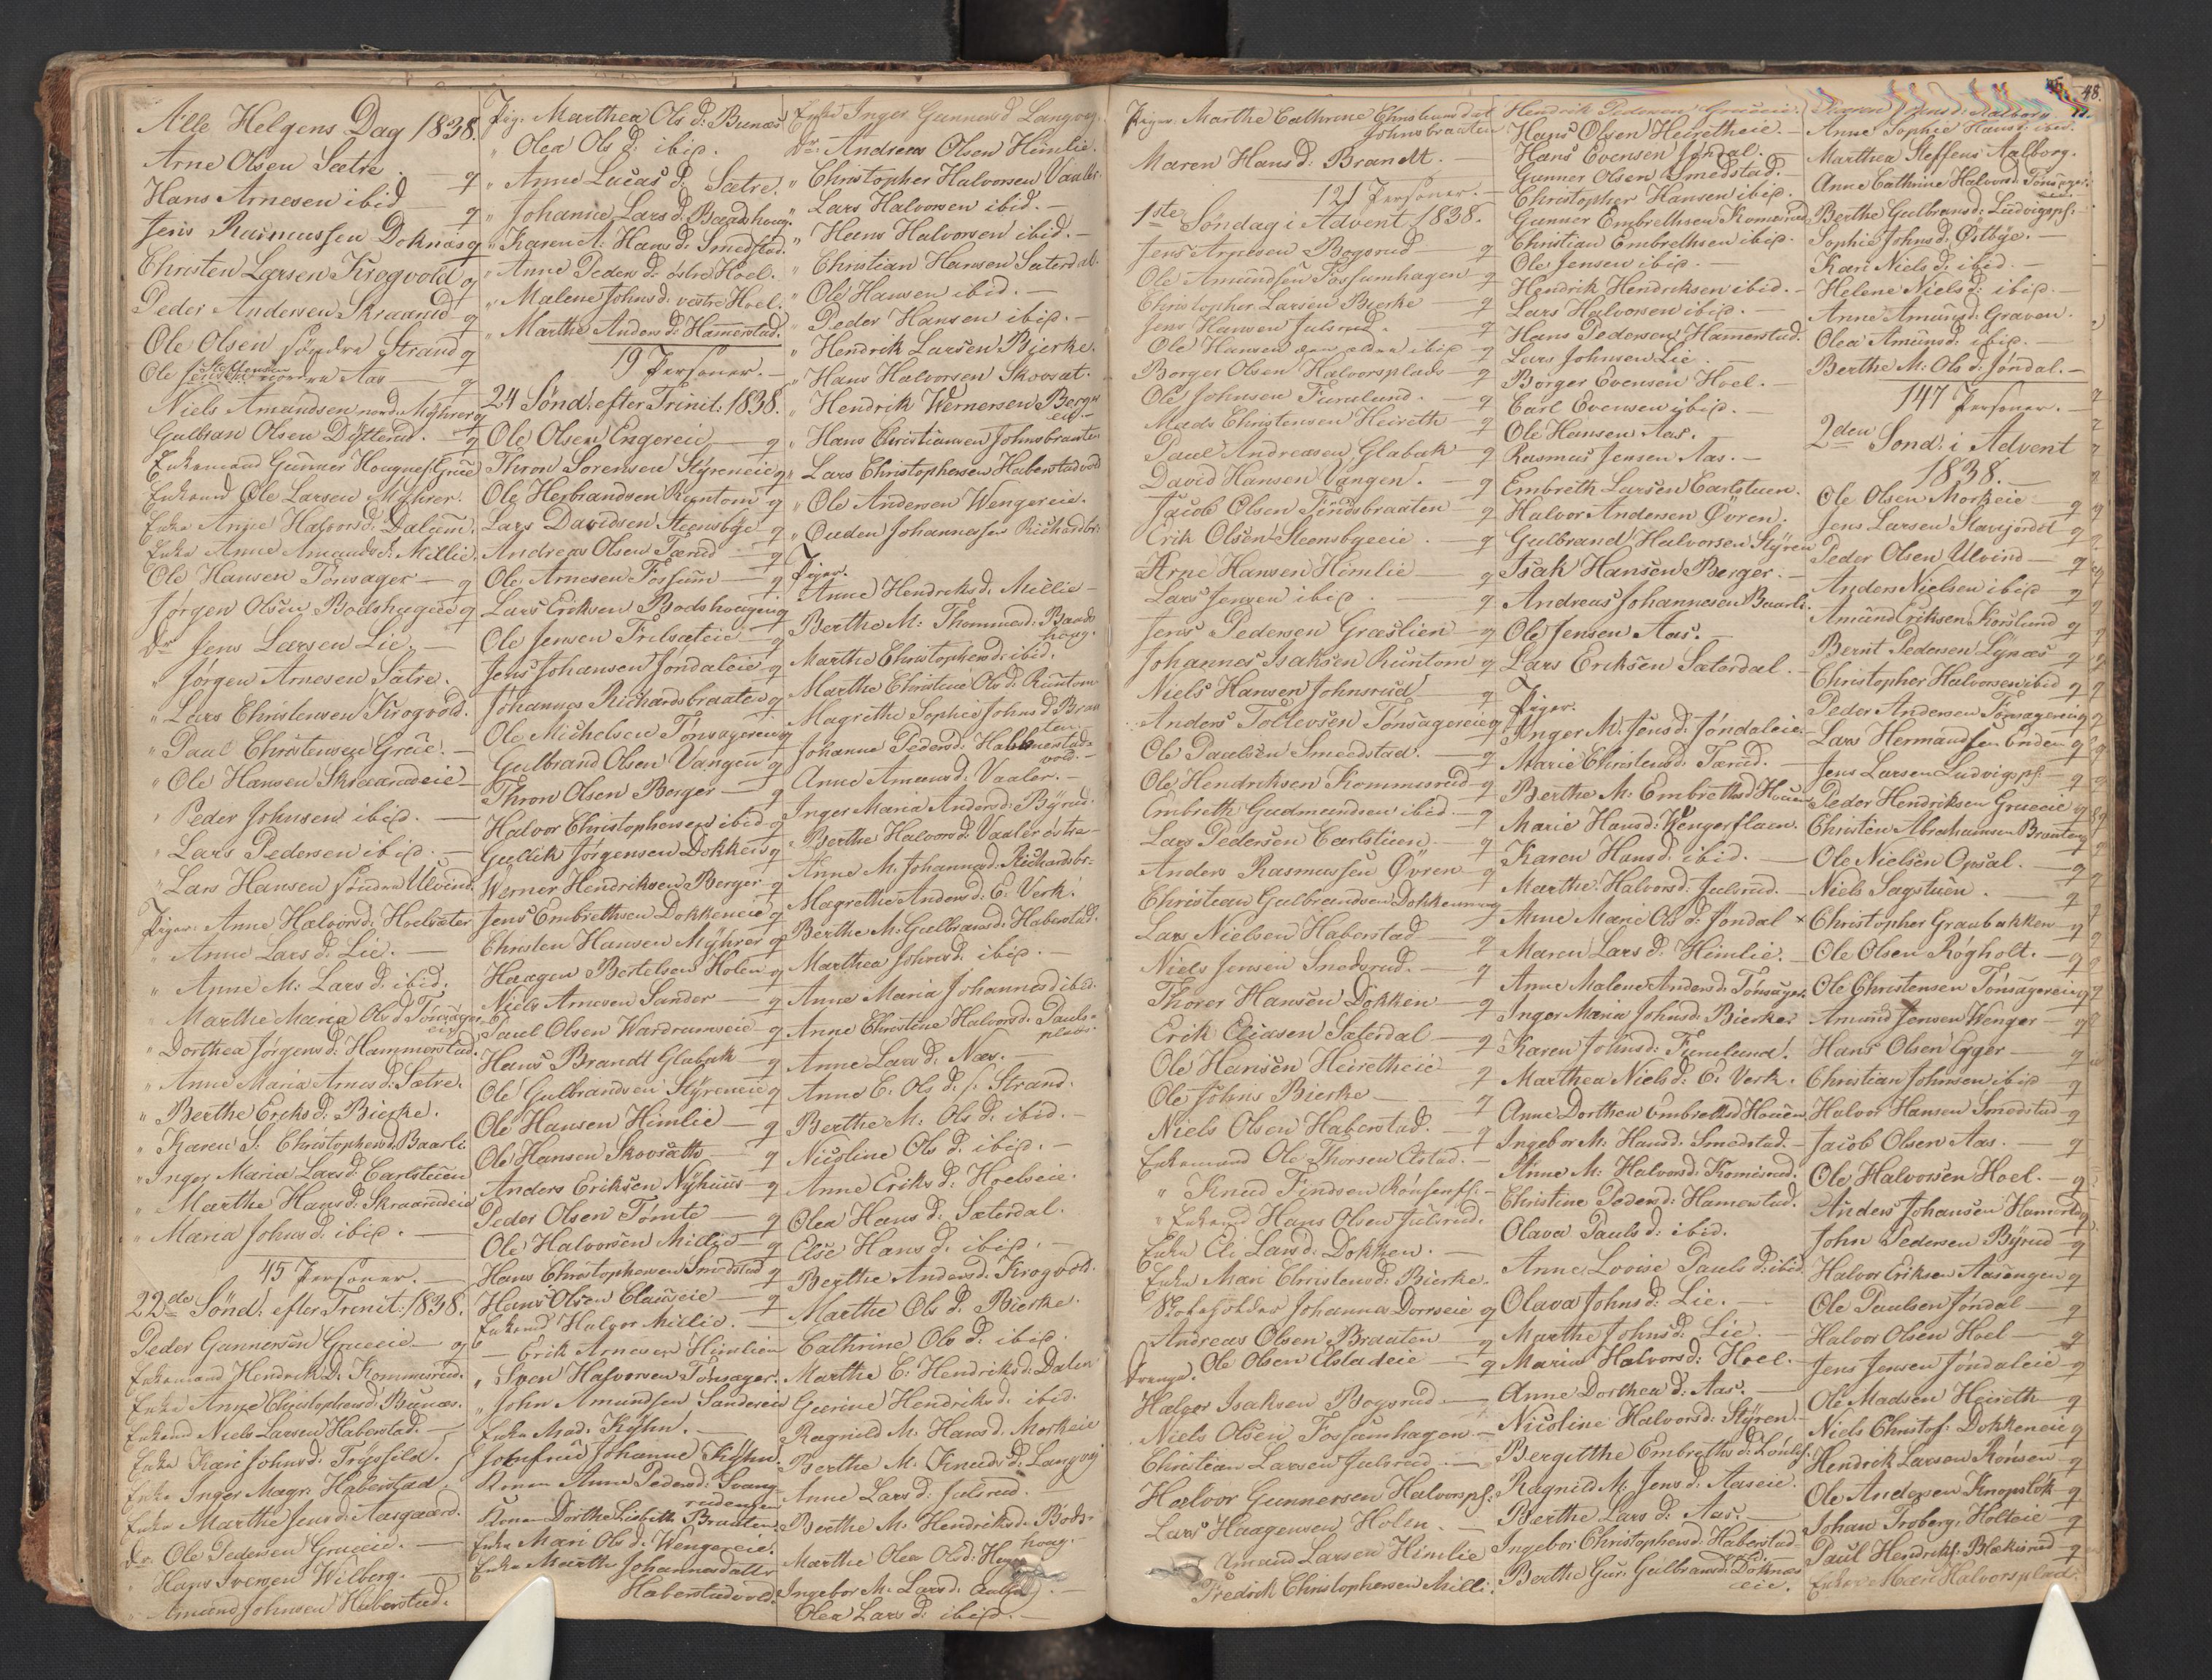 Alle Helgens Dag 1838.
Arne Olsen Sætre q
Hans Arnesen ibid q
Jens Rasmussen Doknæs q
Christen Larsen Krogvold q
Peder Andersen Skraarud q
Ole Olsen søndre Strand q
Ole Steffensen nordre Aas q
Niels Amundsen nord: Myhrer q
Gulbran Olsen Dytterud. q
Enkemand Gunner Hougnes Grue
Enkemd Ole Larsen Myhrer.
Enke Anne Halvorsd: Dalum.
Enke Anne Amundsd: Millie.
Ole Hansen Tonsager q
Jørgen Olsen Bodshagen q
Dr Jens Larsen Lie. —
" Jørgen Arnesen Sætre.
" Lars Christensen Krogvold.
" Paul Christensen Grue. —
" Ole Hansen Skraarudeie —
" Peder Johnsen ibid. —
" Lars Pedersen ibid. —
" Lars Hansen søndre Ulvind.
Piger: Anne Halvorsd: Hoelsæter
" Anne Lars d: Lie. —
" Anne M: Lars d: ibid.
" Marthe Maria Ols d Tonsager
eie
" Dorthea Jørgensd: Hammerstad.
" Anne Maria Arnesd: Sætre.
" Berthe Eriks d: Bierke.
" Karen S: Christophersd. Baarli
" Inger Maria Larsd: Carlstuen
" Marthe Hans d: Skraarudeie
" Maria Johnsd: ibid. —
45 Personer. —
22de Sønd: efter Trinit: 1838.
Peder Gunnersen Grueeie q
Enkemand Hendrik D: Kommisrud.
Enke Anne Christophersd: Bunæs.
Enkemd Niels Larsen Haberstad.
Enke Kari Johnsd: Frøsfild.
Enke Inger Magr: Haberstad.
Enke Marthe Jensd: Aasgaard.
Dr. Ole Pedersen Grueeie. —
" Hans Iversen Wilberg. —
" Amund Johnsen Haberstad.
Pig: Marthea Ols d: Bunæs
" Olea Ols d: ibid.
" Anne Lucas d: Sætre.
" Johanne Lars d: Baadshoug.
" Karen A: Hans d: Smedstad.
" Anne Peders d: østre Hoel.
" Malene Johnsd: vestre Hoel.
" Marthe Anders d: Hamerstad.
19 Personer. —
24 Sønd: efter Trinit: 1838.
Ole Olsen Engereie q
Thron Sorensen Styreneie q
Ole Herbrandsen Runtom q
Lars Davidsen Steensbye q
Andreas Olsen Tærud q
Ole Arnesen Fossum q
Lars Eriksen Bodshougen q
Ole Jensen Trilsæteie q
Jens Johansen Jondaleie q
Johannes Richardsbraaten q
Ole Michelsen Tonsagereie q
Gulbrand Olsen Vangen q
Thron Olsen Berger q
Halvor Christophersen ibid q
Gullik Jørgensen Dokken q
Werner Hendriksen Berger q
Jens Embrethsen Dokkeneie q
Christen Hansen Myhrer q
Haagen Bertelsen Holen q
Niels Arnesen Sander q
Paul Olsen Wardrumseie q
Hans Brandt Glabak q
Ole Gulbrandsen Styreneie q
Ole Hansen Himlie q
Ole Hansen Skovsath q
Anders Eriksen Nyhuus q
Peder Olsen Tomte q
Ole Halvorsen Millie q
Hans Christophersen Smedstad q
Hans Olsen Clauseie q
Enkemd Halvor Millie. —
— Erik Arnesen Himlien
" Sven Halvorsen Tonsager.
" John Amundsen Sandereie
Enke Mad. Kyhn. —
Jomfrue Johanne Kyhn.
Konen Anne Pedersd: Svang-
rudengen
Konen Dorthe Lisbeth Braaten.
Enke Mari Ols d: Wengereie.
Enke Marthe Johannesdatter
Haberstadvold.
Enke Inger Gunnersd Langvig.
Dr: Andreas Olsen Himlie.
" Christopher Halvorsen Vaaler.
" Lars Halvorsen ibid. —
" Hans Halvorsen ibid. —
" Christian Hansen Sæterdal.
" Ole Hansen ibid. —
" Peder Hansen ibid. —
" Hendrik Larsen Bierke.
" Hans Halvorsen Skovsat.
" Hendrik Wernersen Berger
eie. —
" Hans Christiansen Johnsbraaten
" Lars Christophersen Haberstadvold
" Ole Andersen Wengereie.
" Ouden Johannessen Richardsbr:
Piger.
Anne Hendriksd. Millie —
Berthe M: Thommesd: Baads
houg.
Marthe Christophersd: ibid.
Marthe Christine Ols d: Runtom
Magrethe Sophie Johns d Braa
ten.
Johanne Pedersd: Habberstad-
vold. —
Anne Amunds d: Vaaler. —
Inger Maria Andersd: Byrud.
Berthe Halvorsd: Vaaler østre —
Anne M. Johannesd: Richardsbr:
Magrethe Andersd. E. Verk.
Berthe M. Gulbransd: Haberstad.
Marthea Johnsd: ibid. —
Anne Maria Johannesd ibid.
Anne Christine Halvorsd: Pauls-
plads.
Anne Lars d: Næs. —
Anne E: Ols d: s: Strand.
Berthe M: Ols d: ibid. —
Nicoline Ols d: ibid. —
Anne Eriks d: Hoelseie.
Olea Hans d: Sæterdal.
Else Hans d: ibid. —
Berthe Andersd: Krogvold.
Marthe Ols d: Bierke.
Cathrine Ols d: ibid.
Marthe E: Hendriksd: Dalen
Gurine Hendriksd: ibid.
Ragnild M: Hansd: Morkeie
Berthe M: Knuds d: Langvig
Anne Lars d: Julsrud. —
Berthe M: Hendriksd: Bods-
houg.
Marthe Olea Olsd:
Ingebor M: Larsd: —
Olea Lars d: ibid. —
Piger: Marthe Cathrine Christiansdat
Johnsbraaten
Maren Hans d: Brandt. —
121 Personer. —
1ste Søndag i Advent 1838.
Jens Arnesen Bogsrud q
Ole Amundsen Fossumhagen q
Christopher Larsen Bierke q
Jens Hansen Julsrud. q
Ole Hansen den eldre ibid q
Borger Olsen Halvorsplads q
Ole Johnsen Funelund. q
Mads Christensen Heireth q
Paul Andreasen Glabak q
David Hansen Vangen. q
Jacob Olsen Findsbraaten q
Erik Olsen Steensbyeeie. q
Arne Hansen Himlie q
Lars Jensen ibid. q
Jens Pedersen Græslien q
Johannes Isaksen Runtom q
Niels Hansen Johnsrud q
Anders Tollevsen Tonsagereie q
Ole Paulsen Smedstad. q
Ole Hendriksen Kommisrud q
Embreth Gudmundsen ibid. q
Lars Pedersen Carlstuen q
Anders Rasmussen Øvren q
Christian Gulbrandsen Dokken q
Lars Nielsen Haberstad q
Niels Jensen Snedsrud. q
Thorer Hansen Dokken q
Erik Eliasen Sæterdal q
Ole Hansen Heiretheie q
Ole Johns Bierke q
Niels Olsen Haberstad. q
Enkemand Ole Thorsen Elstad. —
" Knud Findsen Rønsenss: —
" Enkemd Hans Olsen Julsrud.
Enke Eli Larsd: Dokken. —
Enke Mari Christensd: Bierke.
Skoleholder Johannes Dorrseie q
Andreas Olsen Braaten q
Ole Olsen Elstadeie q
Halvor Isaksen Bogsrud —
Niels Olsen Fossumhagen —
Christian Larsen Julsrud —
Halvor Gunnersen Halvorspl:
Lars Haagensen Holen. —
Amund Larsen Himlie
Fredrik Christophersen Milli.
Hendrik Pedersen Grueeie.
Hans Olsen Heiretheie. —
Hans Evensen Jøndal. —
Gunner Olsen Smedstad. —
Christopher Hansen ibid.
Gunner Embrethsen Komisrud
Christian Embrethsen ibid.
Ole Jensen ibid. —
Hendrik Hendriksen ibid. —
Lars Halvorsen ibid. —
Hans Pedersen Hamerstad.
Lars Johnsen Lie. —
Borger Evensen Hoel. —
Carl Evensen ibid. —
Ole Hansen Aas.
Rasmus Jensen Aas. —
Embreth Larsen Carlstuen.
Halvor Andersen Øvren.
Gulbrand Halvorsen Styren
Isak Hansen Berger. —
Andreas Johannesen Baarli.
Ole Jensen Aas.
Lars Eriksen Sæterdal. —
Piger.
Inger M: Jensd: Jøndaleie.
Marie Christensd: Tærud. —
Berthe M: Embrethsd Houen
Marie Hansd: Wengerflaen.
Karen Hans d: ibid. —
Marthe Halvorsd: Julsrud. —
Anne Marie Ols d: Jøndal ×
Maren Lars d: Himlie. —
Anne Malene Andersd: Tonsager.
Inger Maria Johnsd: Bierke.
Karen Johnsd: Funelund.
Marthea Niels d: E: Verk.
Anne Dorthea Embrethsd Houen
Ingebor M: Hansd: Smedstad. —
Anne M: Halvorsd: Komisrud.
Christine Pedersd: Hamerstad.
Olava Pauls d: ibid.
Anne Lovise Pauls d: ibid
Olava Johns d: Lie. —
Marthe Johns d: Lie. —
Maria Halvorsd: Hoel. —
Anne Dorthea d: Aas. —
Nicoline Halvorsd: Styren —
Bergitthe Embreths d:
Ragnild M: Jens d: Aaseie.
Berthe Lars d: Aas. —
Ingebor Christophersd: Haberstad-
Berthe Gur: Gulbransd: Doknæs
eie.
48.
Anne Sophie Hansd: ibid.
Marthea Steffens Aalborg.
Anne Cathrine Halvorsd: Tonsager
eie.
Berthe Gulbransd: Ludvigspl:
Sophie Johns d: Østbye. —
Kari Niels d: ibid. —
Helene Niels d: ibid. —
Anne Amunsd: Graven. —
Olea Amunsd: ibid. —
Berthe M: Ols d: Jøndal. —
147 Personer. —
2den Sønd: i Advent
1838. —
Ole Olsen Morkeie q
Jens Larsen Stavjordet q
Peder Olsen Ulvind q
Anders Nielsen ibid q
Amund Eriksen Korslund q
Bernt Pedersen Lynæs q
Christopher Halvorsen ibid q
Peder Andersen Tonsagereie q
Lars Hermandsen Enden q
Jens Larsen Ludvigspl: q
Peder Hendriksen Grueeie q
Christen Abrahamsen Braaten q
Ole Nielsen Opsal. q
Niels Sagstuen. q
Christopher Graubakken q
Ole Olsen Røgholt. q
Ole Christensen Tonsagereie q
Amund Jensen Wenger q
Hans Olsen Egger q
Christian Johnsen ibid q
Halvor Hansen Smedstad q
Jacob Olsen Aas. q
Ole Halvorsen Hoel. q
Anders Johansen Hamerstad q
John Pedersen Byrud q
Halvor Eriksen Aasengen q
Ole Paulsen Jøndal q
Halvor Olsen Hoel q
Jens Jensen Jøndaleie q
Ole Madsen Heireth q
Niels Christof: Dokkeneie q
Hendrik Larsen Rønsen q
Ole Andersen Knopslok q
Johan Froberg: Holteie q
Paul Hendriks: Blæksrud q
Enke Mari Halvorsplad: